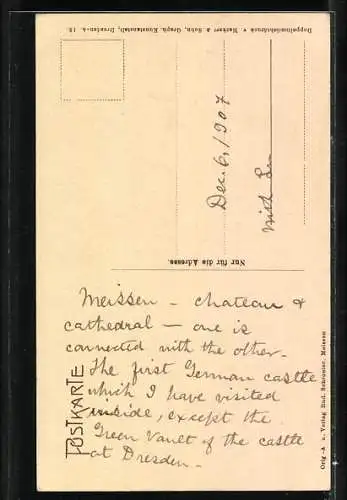 Doppeltondruck v. Markert & Sohn, Graph. Kunstanstalt, Dresden-A. 13.
Dec. 6, 1907
Nur für die Adresse.
Meissen - chateau &
cathedral - one is
connected with the other.
The first German castle
which I have visited
inside, except the
Green Vault of the castle
at Dresden.
POSTKARTE
Orig.-A. u. Verlag Rud. Schröter, Meissen